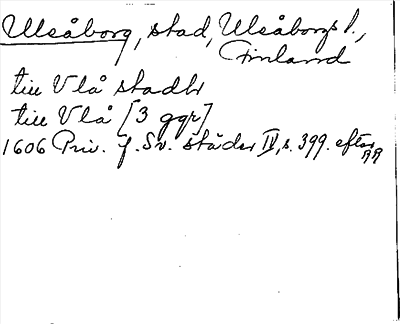 Uleåborg, stad, Uleåborgs l.,
Finland
till Vlå stadh
till Vlå [3 ggr]
1606 Priv. f. Sv. städer IV, s. 399. efter
RR